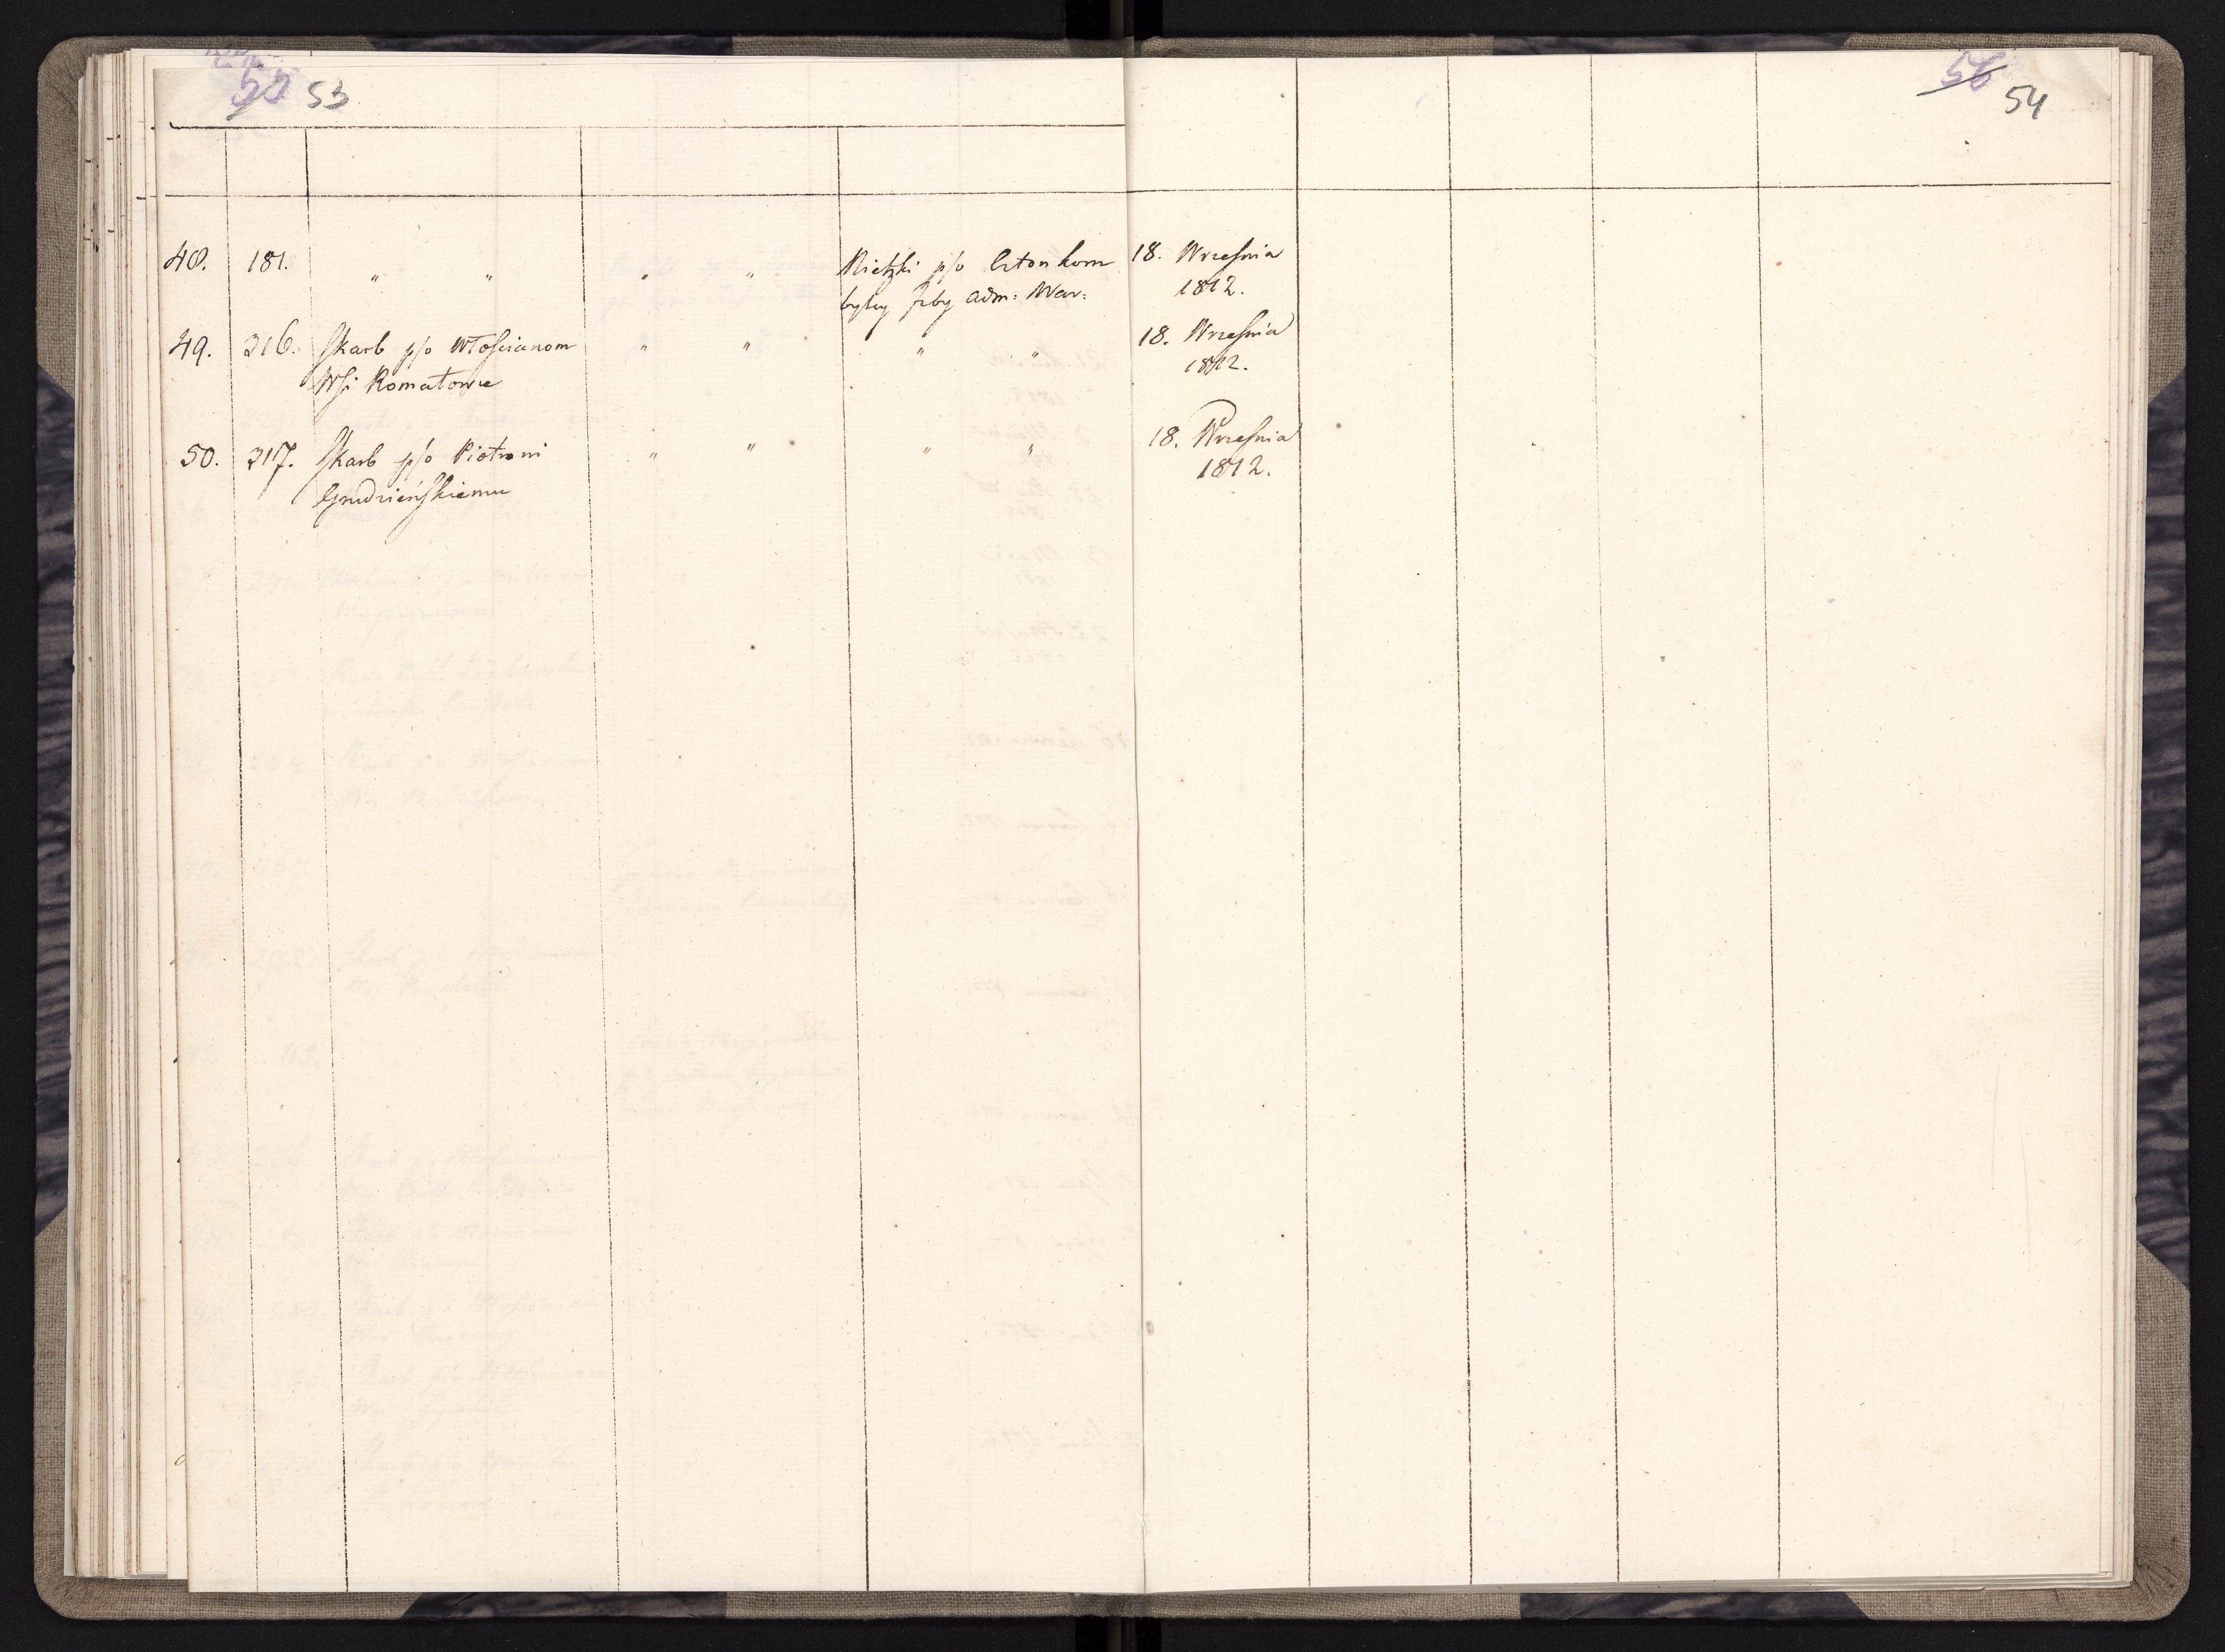 53
56
54
48. 181. " " " " Nietzki p/o Czton kom 18. Września
byłey Jzby Adm: War: 1812.
49. 216. Skarb p/o Włościanom " " " " 18. Września
Wsi Romatowe 1812.
50. 217. Skarb p/o Piotrowi " " " " 18. Września
Grudzieńskiemu 1812.